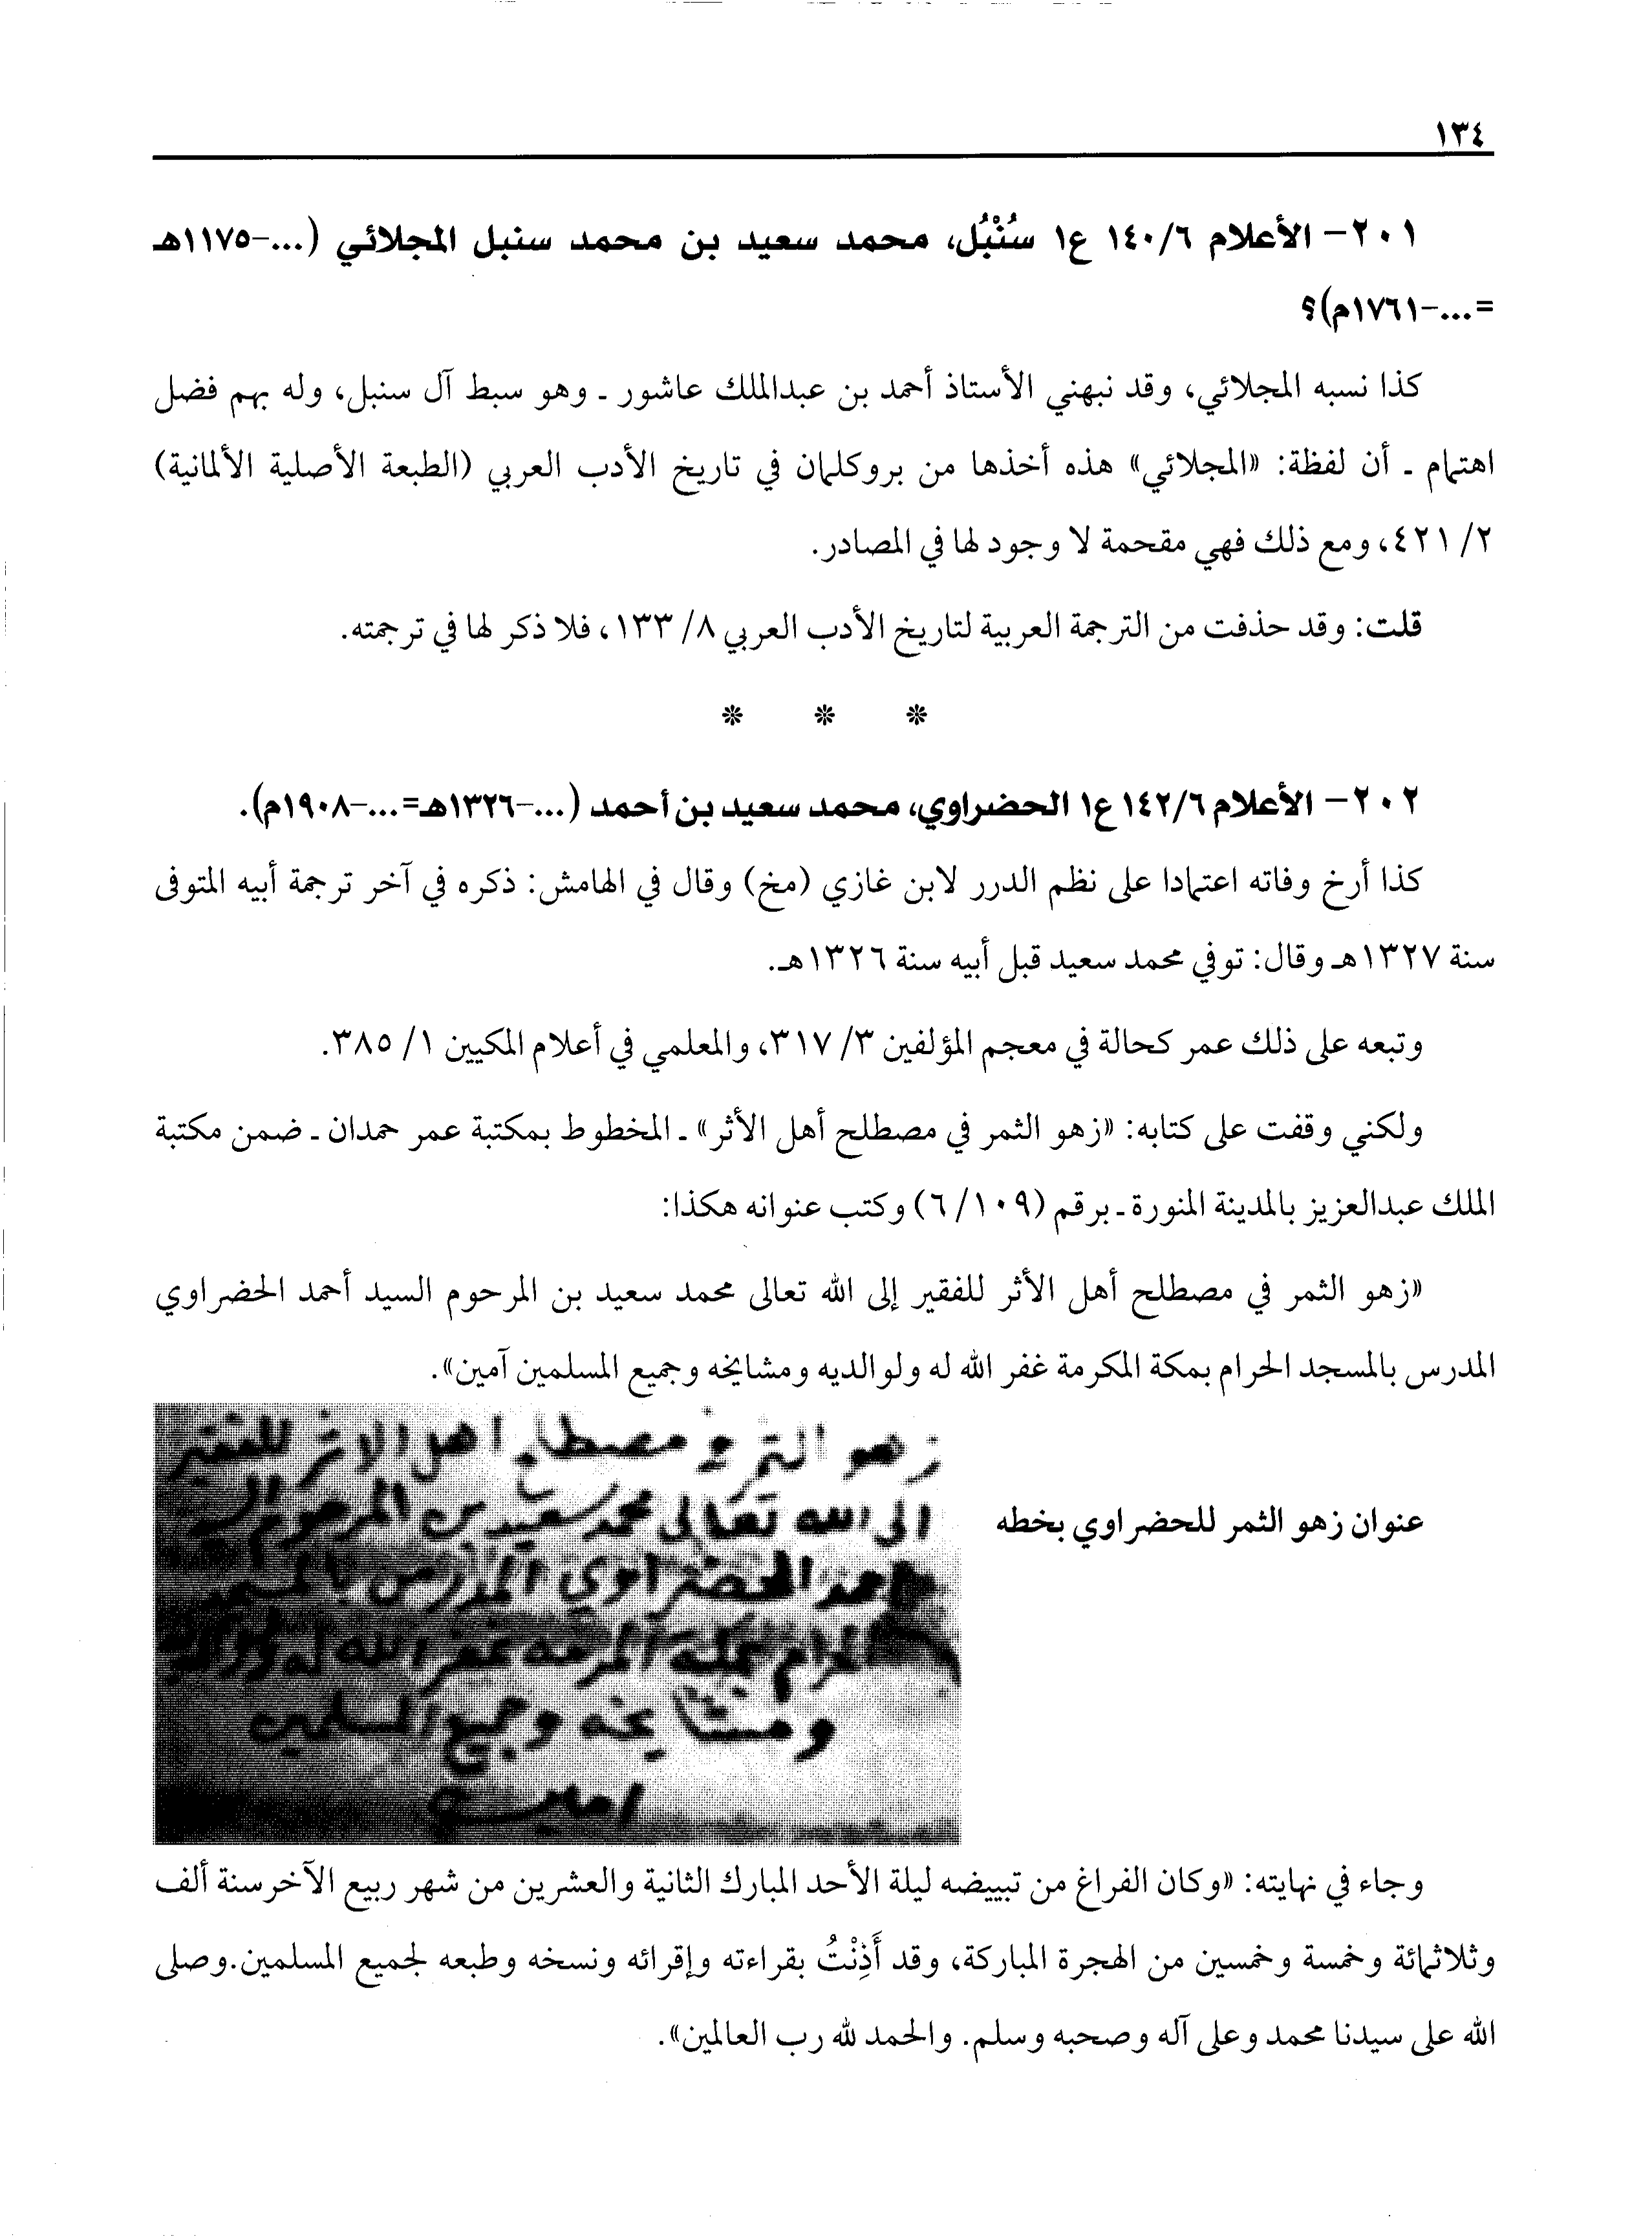 ١٣٤
٢٠١- الأعلام ١٤٠/٦ ع١ سُنْبُل، محمد سعيد بن محمد سنبل المجلائي (...-١١٧٥هـ
=...-١٧٦١م)؟
كذا نسبه المجلائي، وقد نبهني الأستاذ أحمد بن عبدالملك عاشور ـ وهو سبط آل سنبل، وله بهم فضل
اهتمام ـ أن لفظة: «المجلائي» هذه أخذها من بروكلمان في تاريخ الأدب العربي (الطبعة الأصلية الألمانية)
٢/ ٤٢١، ومع ذلك فهي مقحمة لا وجود لها في المصادر.
قلت: وقد حذفت من الترجمة العربية لتاريخ الأدب العربي ٨/ ١٣٣، فلا ذكر لها في ترجمته.
* * *
٢٠٢- الأعلام ١٤٢/٦ ع١ الحضراوي، محمد سعيد بن أحمد (...-١٣٢٦هـ=...-١٩٠٨م).
كذا أرخ وفاته اعتمادا على نظم الدرر لابن غازي (مخ) وقال في الهامش: ذكره في آخر ترجمة أبيه المتوفى
سنة ١٣٢٧هـ وقال: توفي محمد سعيد قبل أبيه سنة ١٣٢٦هـ.
وتبعه على ذلك عمر كحالة في معجم المؤلفين ٣/ ٣١٧، والمعلمي في أعلام المكيين ١/ ٣٨٥.
ولكني وقفت على كتابه: «زهو الثمر في مصطلح أهل الأثر» ـ المخطوط بمكتبة عمر حمدان ـ ضمن مكتبة
الملك عبدالعزيز بالمدينة المنورة ـ برقم (١٠٩/ ٦) وكتب عنوانه هكذا:
«زهو الثمر في مصطلح أهل الأثر للفقير إلى الله تعالى محمد سعيد بن المرحوم السيد أحمد الحضراوي
المدرس بالمسجد الحرام بمكة المكرمة غفر الله له ولوالديه ومشايخه وجميع المسلمين آمين».
زهو الثمر في مصطلح اهل الاثر للفقير
الى الله تعالى محمد سعيد بن المرحوم السيد
احمد الحضراوي المدرس بالمسجد
الحرام بمكة المكرمه غفر الله له ولوالديه
ومشايخه وجميع المسلمين
امين
عنوان زهو الثمر للحضراوي بخطه
وجاء في نهايته: «وكان الفراغ من تبييضه ليلة الأحد المبارك الثانية والعشرين من شهر ربيع الآخر سنة ألف
وثلاثمائة وخمسة وخمسين من الهجرة المباركة، وقد أَذِنْتُ بقراءته وإقرائه ونسخه وطبعه لجميع المسلمين.وصلى
الله على سيدنا محمد وعلى آله وصحبه وسلم. والحمد لله رب العالمين».